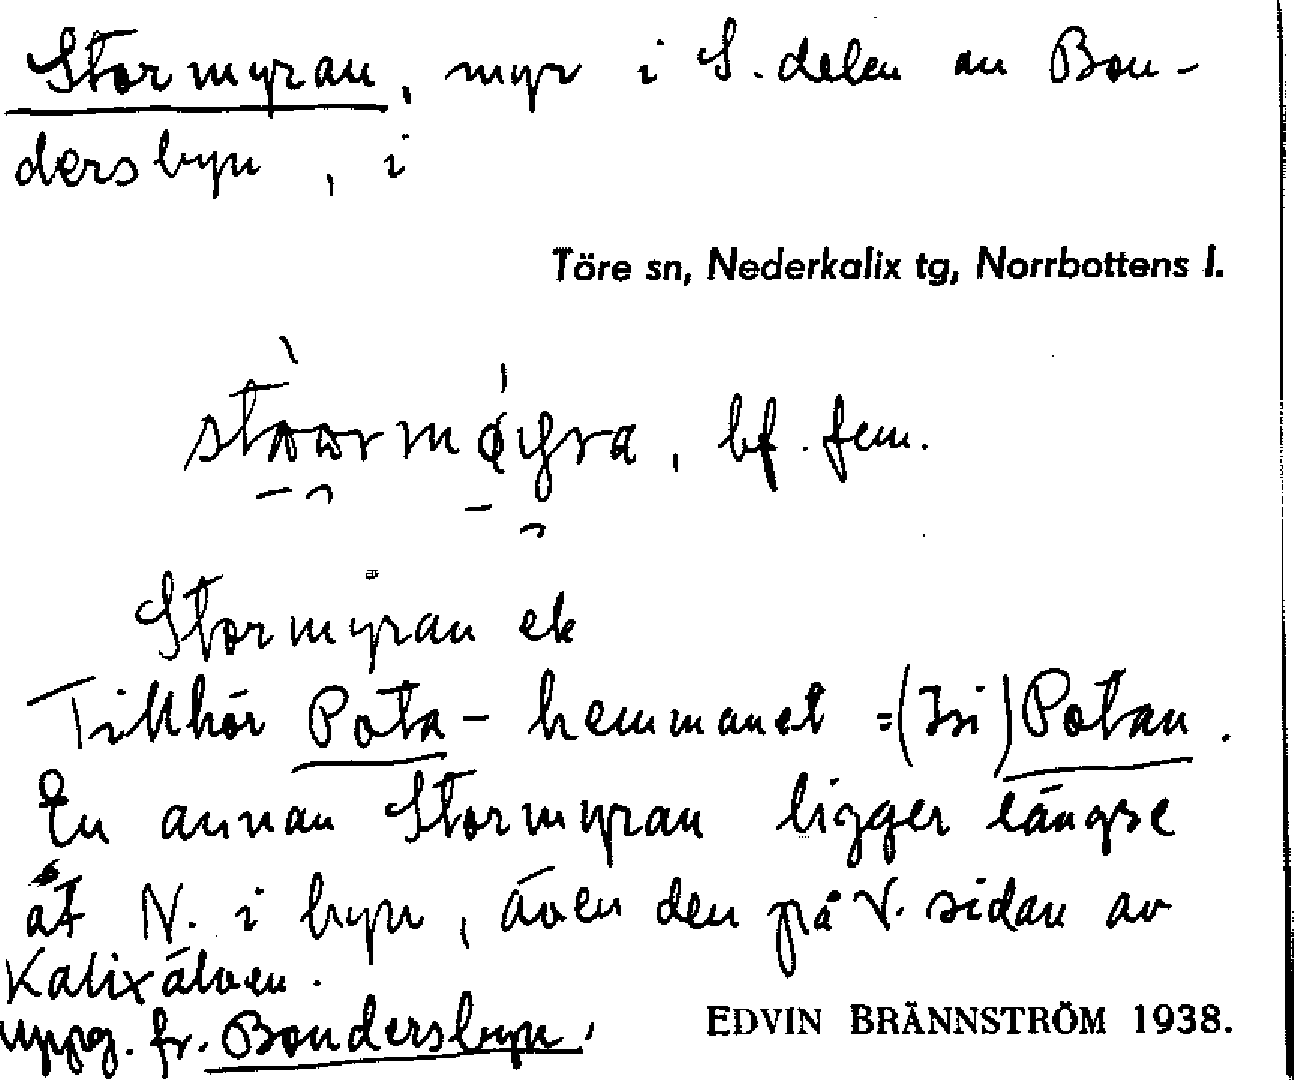 Stormyran, myr i S. delen av Bon-
dersbyn, i
Töre sn, Nederkalix tg, Norrbottens l.
bf. fem.
Stormyran ek
Tillhör Pota- hemmanet =(Isi) Potan.
En annan Stormyran ligger längre
åt N. i byn, även den på V. sidan av
Kalixälven.
uppg. fr. Bondersbyn.
EDVIN BRÄNNSTRÖM 1938.